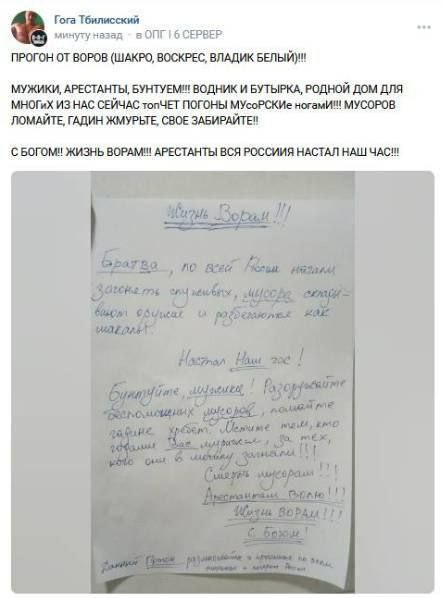 Гога Тбилисский
минуту назад · в ОПГ | 6 СЕРВЕР
ПРОГОН ОТ ВОРОВ (ШАКРО, ВОСКРЕС, ВЛАДИК БЕЛЫЙ)!!!
МУЖИКИ, АРЕСТАНТЫ, БУНТУЕМ!!! ВОДНИК И БУТЫРКА, РОДНОЙ ДОМ ДЛЯ
МНОГиХ ИЗ НАС СЕЙЧАС топЧЕТ ПОГОНЫ МУсоРСКИе ногамИ!!! МУСОРОВ
ЛОМАЙТЕ, ГАДИН ЖМУРЬТЕ, СВОЕ ЗАБИРАЙТЕ!!
С БОГОМ!! ЖИЗНЬ ВОРАМ!!! АРЕСТАНТЫ ВСЯ РОССИИЯ НАСТАЛ НАШ ЧАС!!!
Жизнь Ворам!!!
Братва, по всей России начали
загонять служивых, мусора склады-
вают оружие и разбегаются как
шакалы!
Настал Наш час!
Бунтуйте, мужики! Разоружайте
беспомощных мусоров, ломайте
гадине хребет. Мстите тем, кто
годами Вас, за тех,
кого они в могилу загнали!!!
Смерть мусорам!!!
Арестантам Волю!!!
Жизнь ВОРАМ!!!
С Богом!
Данный Прогон и по всем
и лагерям России